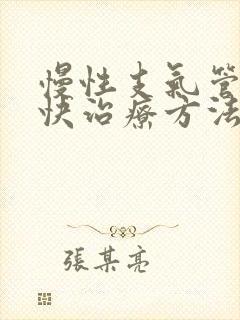 慢性支氣管
快治療方法
張某亮